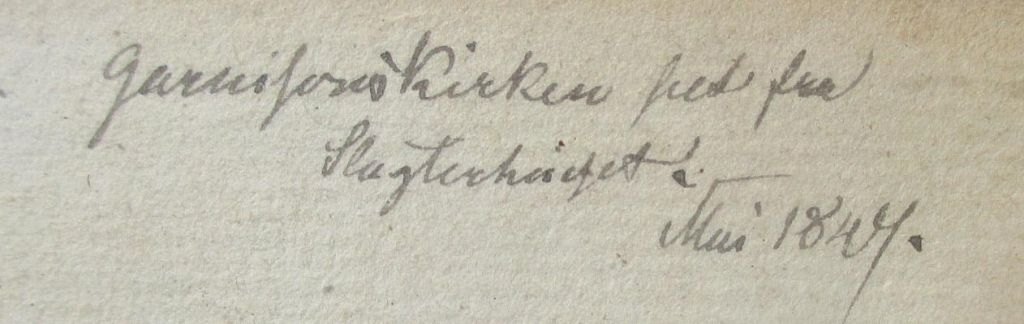 Garnisonskirken set fra
Slagterhuset
Mai 1847.